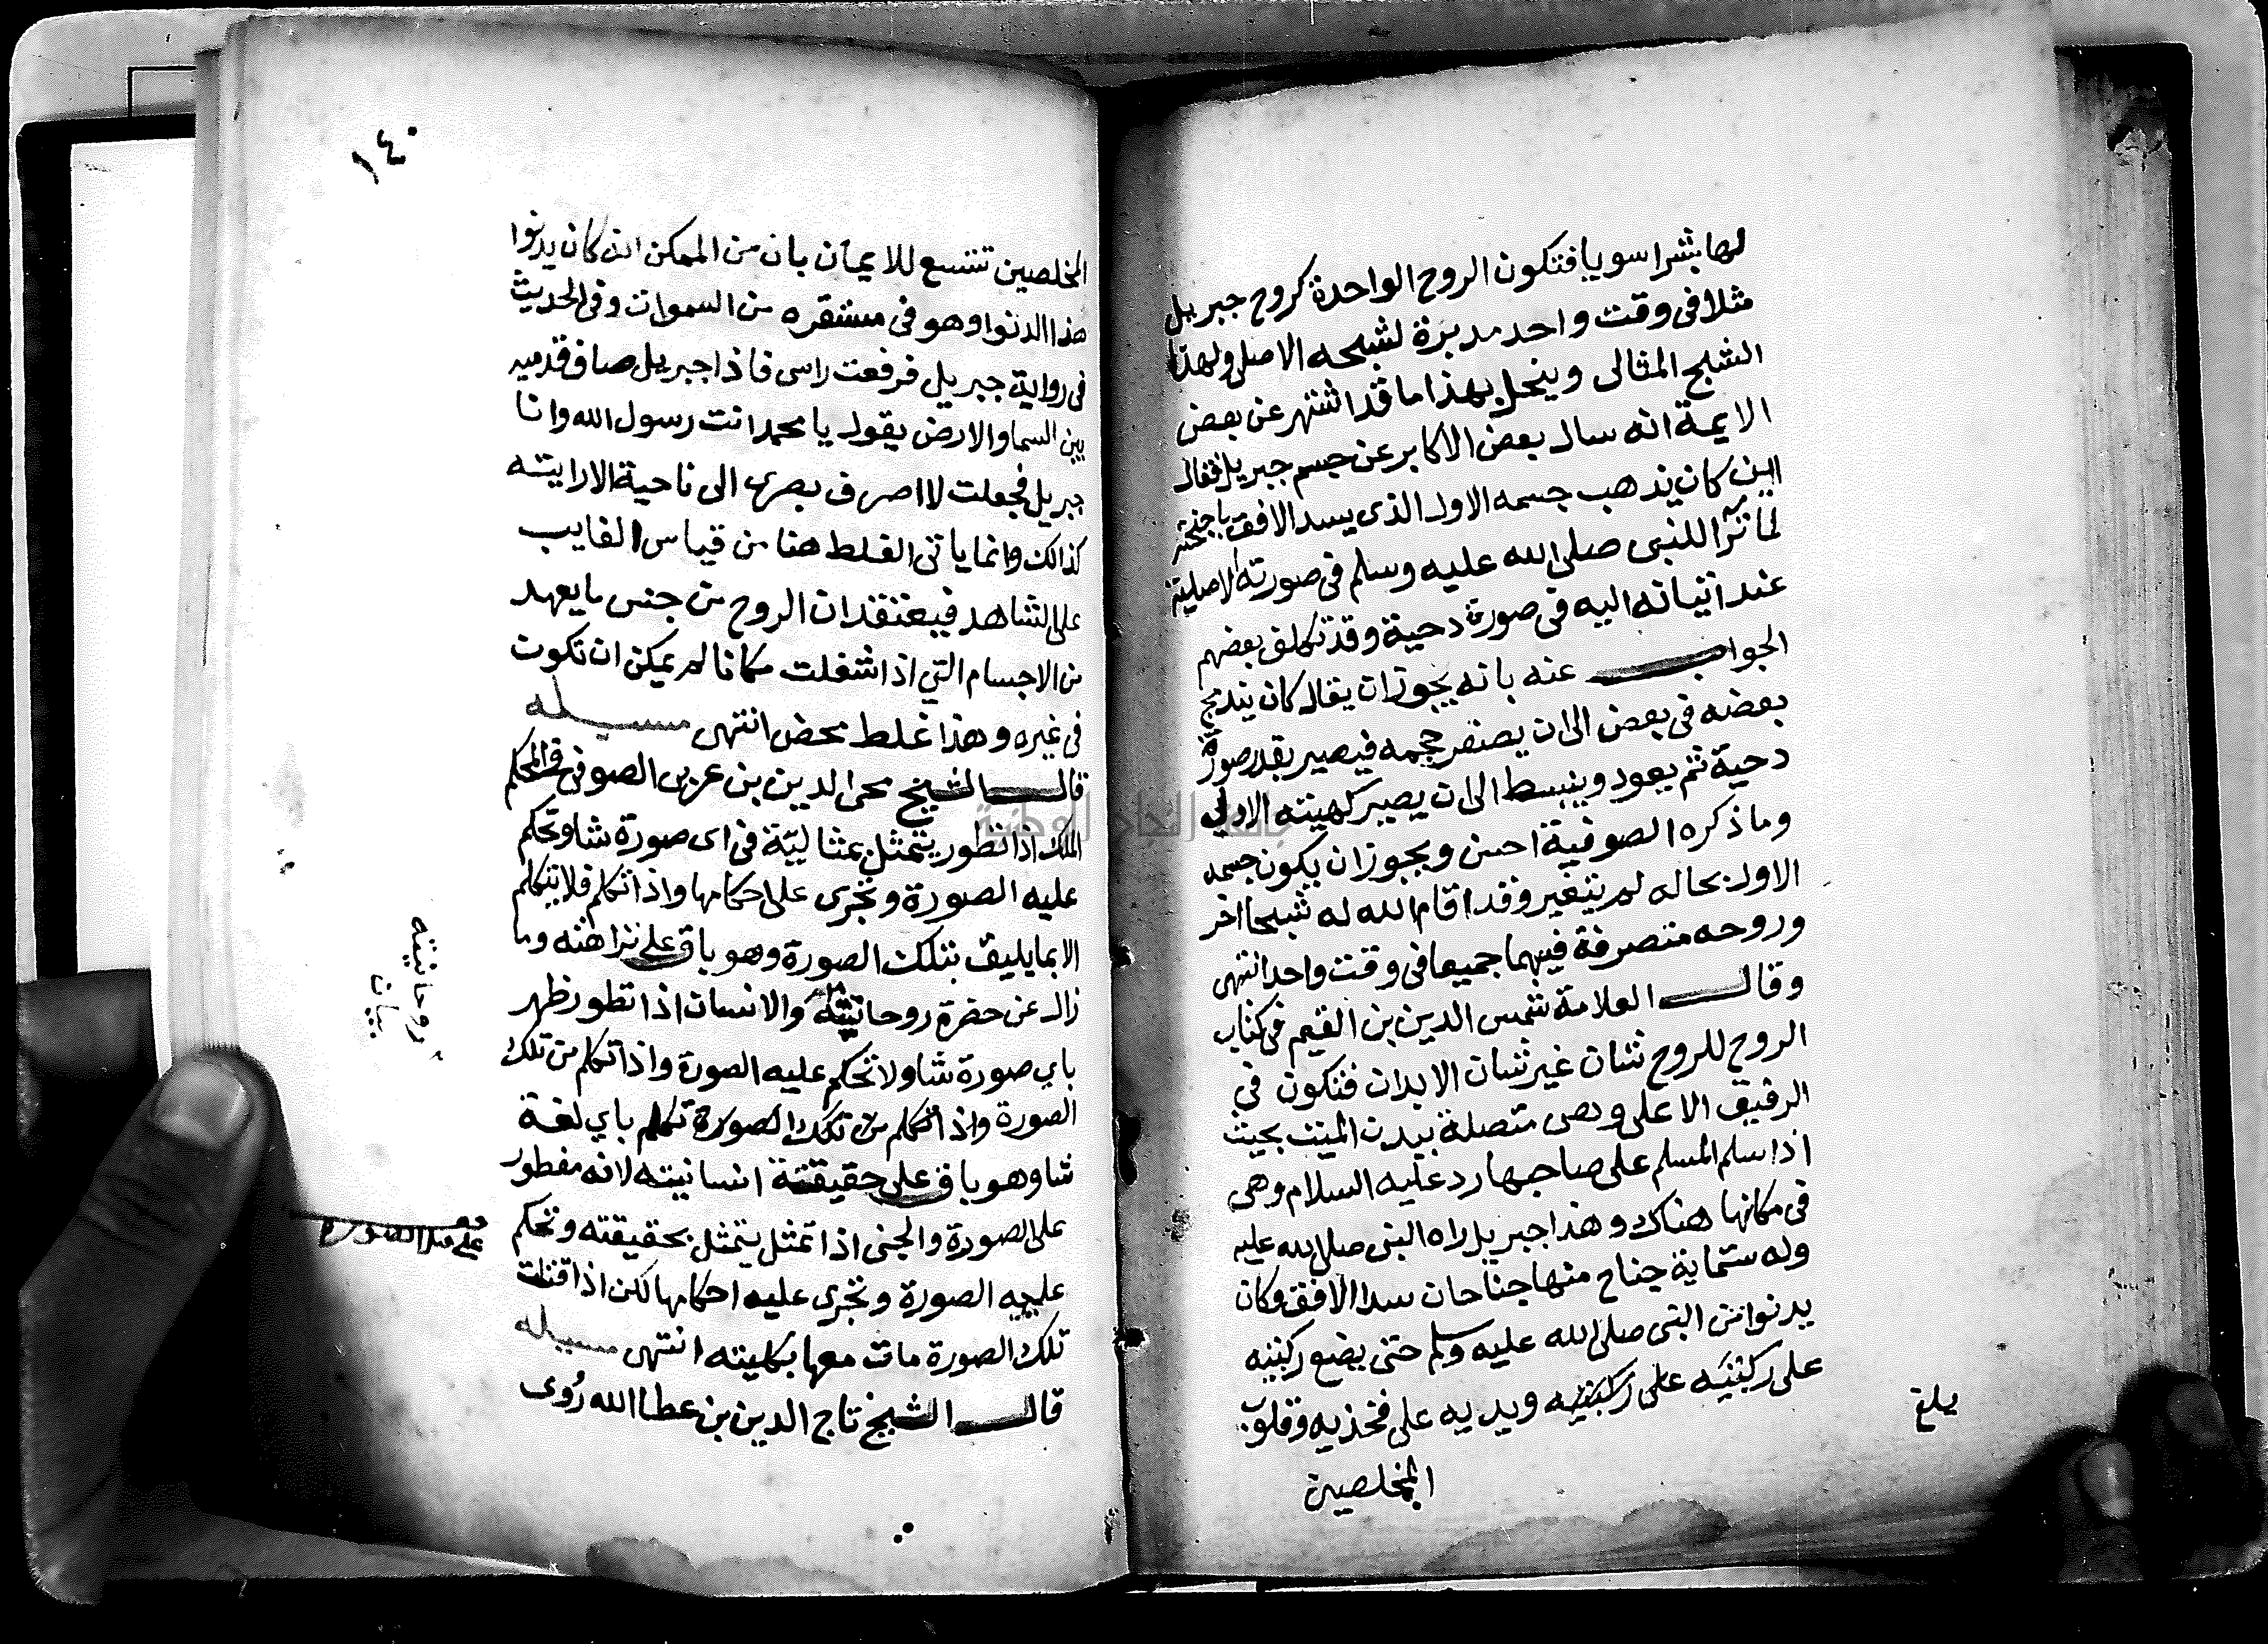 لها بشرا سويا فتكون الروح الواحدة كروح جبريل
مثلا فى وقت واحد مدبرة لشبحه الاصلى ولهذا
الشبح المثالى وينحل بهذا ما قد اشتهر عن بعض
الايمة انه سال بعض الاكابر عن جسم جبريل فقال
اين كان يذهب جسمه الاول الذى يسد الافق باجنحته
لما ترآ للنبى صلى الله عليه وسلم فى صورته الاصلية
عند اتيانه اليه فى صورة دحية وقد تكلف بعضهم
الجواب عنه بانه يجوز ان يقال كان يندمج
بعضه فى بعض الى ان يصغر حجمه فيصير بقدر صورة
دحية ثم يعود وينبسط الى ان يصير كهيئته الاولى
وما ذكره الصوفية احسن ويجوز ان يكون جسمه
الاول بحاله لم يتغير وقد اقام الله له شبحا اخر
وروحه متصرفة فيهما جميعا فى وقت واحد انتهى
وقال العلامة شمس الدين بن القيم فى كتاب
الروح للروح شان غير شان الابدان فتكون فى
الرفيق الاعلى وهى متصلة ببدن الميت بحيث
اذا سلم المسلم على صاحبها رد عليه السلام وهى
فى مكانها هناك وهذا جبريل راه النبى صلى الله عليه
وله ستماية جناح منها جناحان سدا الافق وكان
يدنوا من النبى صلى الله عليه وسلم حتى يضع ركبتيه
على ركبتيه على ركبتيه ويديه على فخذيه وقلوب
بلغ
المخلصين
١٤٠
المخلصين تتسع للايمان بان من الممكن انه كان يدنوا
هذا الدنوا وهو فى مستقره من السموات وفى الحديث
فى رواية جبريل فرفعت راسى فاذا جبريل صاف قدميه
بين السما والارض يقول يا محمد انت رسول الله وانا
جبريل فجعلت لا اصرف بصرى الى ناحية الا رايته
كذالك وانما ياتى الغلط هنا من قياس الغايب
على الشاهد فيعتقد ان الروح من جنس ما يعهد
من الاجسام التي اذا شغلت مكانا لم يمكن ان تكون
فى غيره وهذا غلط محض انتهى مسيله
قال الشيخ محى الدين بن عربى الصوفى فى المحكم
الملك اذا تطور يتمثل بمثاليّة فى اى صورة شا وتحكم
عليه الصورة وتجرى على احكامها واذا تكلم فلا يتكلم
الا بما يليق بتلك الصورة وهو باق على نزاهته وما
زال عن حضرة روحانيته والانسان اذا تطور ظهر
باي صورة شا ولا تحكم عليه الصورة واذا تكلم من تلك
الصورة واذا تكلم من تلك الصورة تكلم باي لغة
شا وهو باق على حقيقة انسانيته لانه مفطور
على الصورة والجنى اذا تمثل يتمثل بحقيقته وتحكم
عليه الصورة وتجرى عليه احكامها لكن اذا قتلت
تلك الصورة مات معها بكليته انتهى مسيله
قال الشيخ تاج الدين بن عطا الله رُوى
روحانيته
بيان